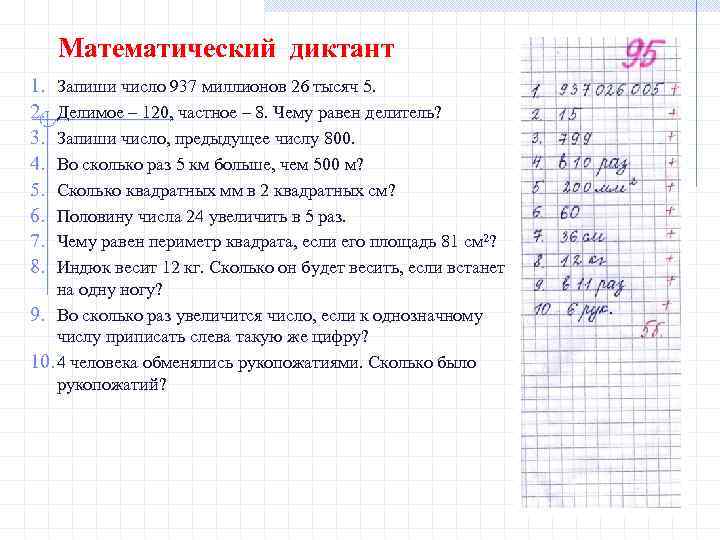 Математический диктант
1. Запиши число 937 миллионов 26 тысяч 5.
2. Делимое – 120, частное – 8. Чему равен делитель?
3. Запиши число, предыдущее числу 800.
4. Во сколько раз 5 км больше, чем 500 м?
5. Сколько квадратных мм в 2 квадратных см?
6. Половину числа 24 увеличить в 5 раз.
7. Чему равен периметр квадрата, если его площадь 81 см²?
8. Индюк весит 12 кг. Сколько он будет весить, если встанет
на одну ногу?
9. Во сколько раз увеличится число, если к однозначному
числу приписать слева такую же цифру?
10. 4 человека обменялись рукопожатиями. Сколько было
рукопожатий?
95
1. 937026005 +
2. 15 +
3. 799 +
4. в 10 раз +
5 200мм² +
6. 60 +
7. 36 см +
8. 12 кг +
9. в 11 раз +
10 6 рук. +
5б.